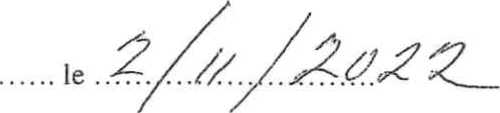 ...... le 2/11/2022